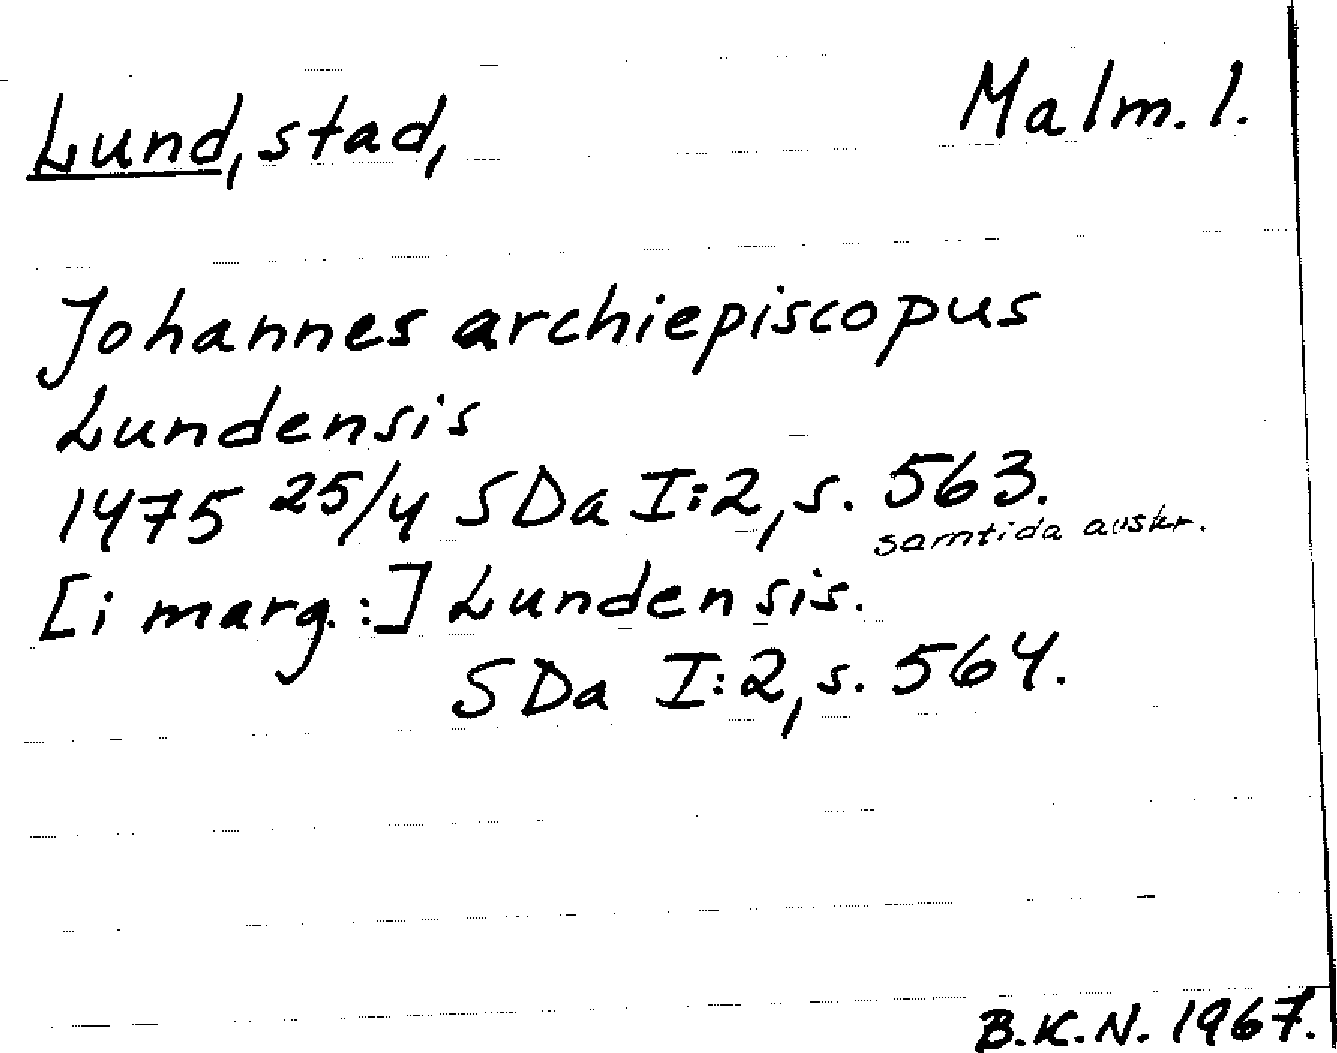 Lund, stad, Malm. l.
Johannes archiepiscopus
Lundensis
1475 25/4 SDa I:2, s. 563.
samtida avskr.
[i marg.:] Lundensis.
SDa I:2, s. 564.
B.K.N. 1967.